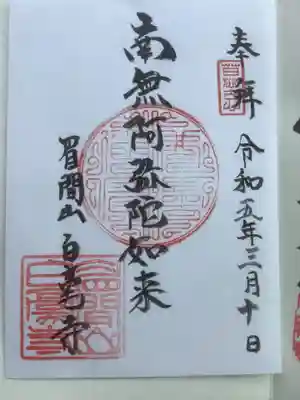 奉拝
令和五年三月十日
南無阿弥陀如来
眉間山
白毫寺